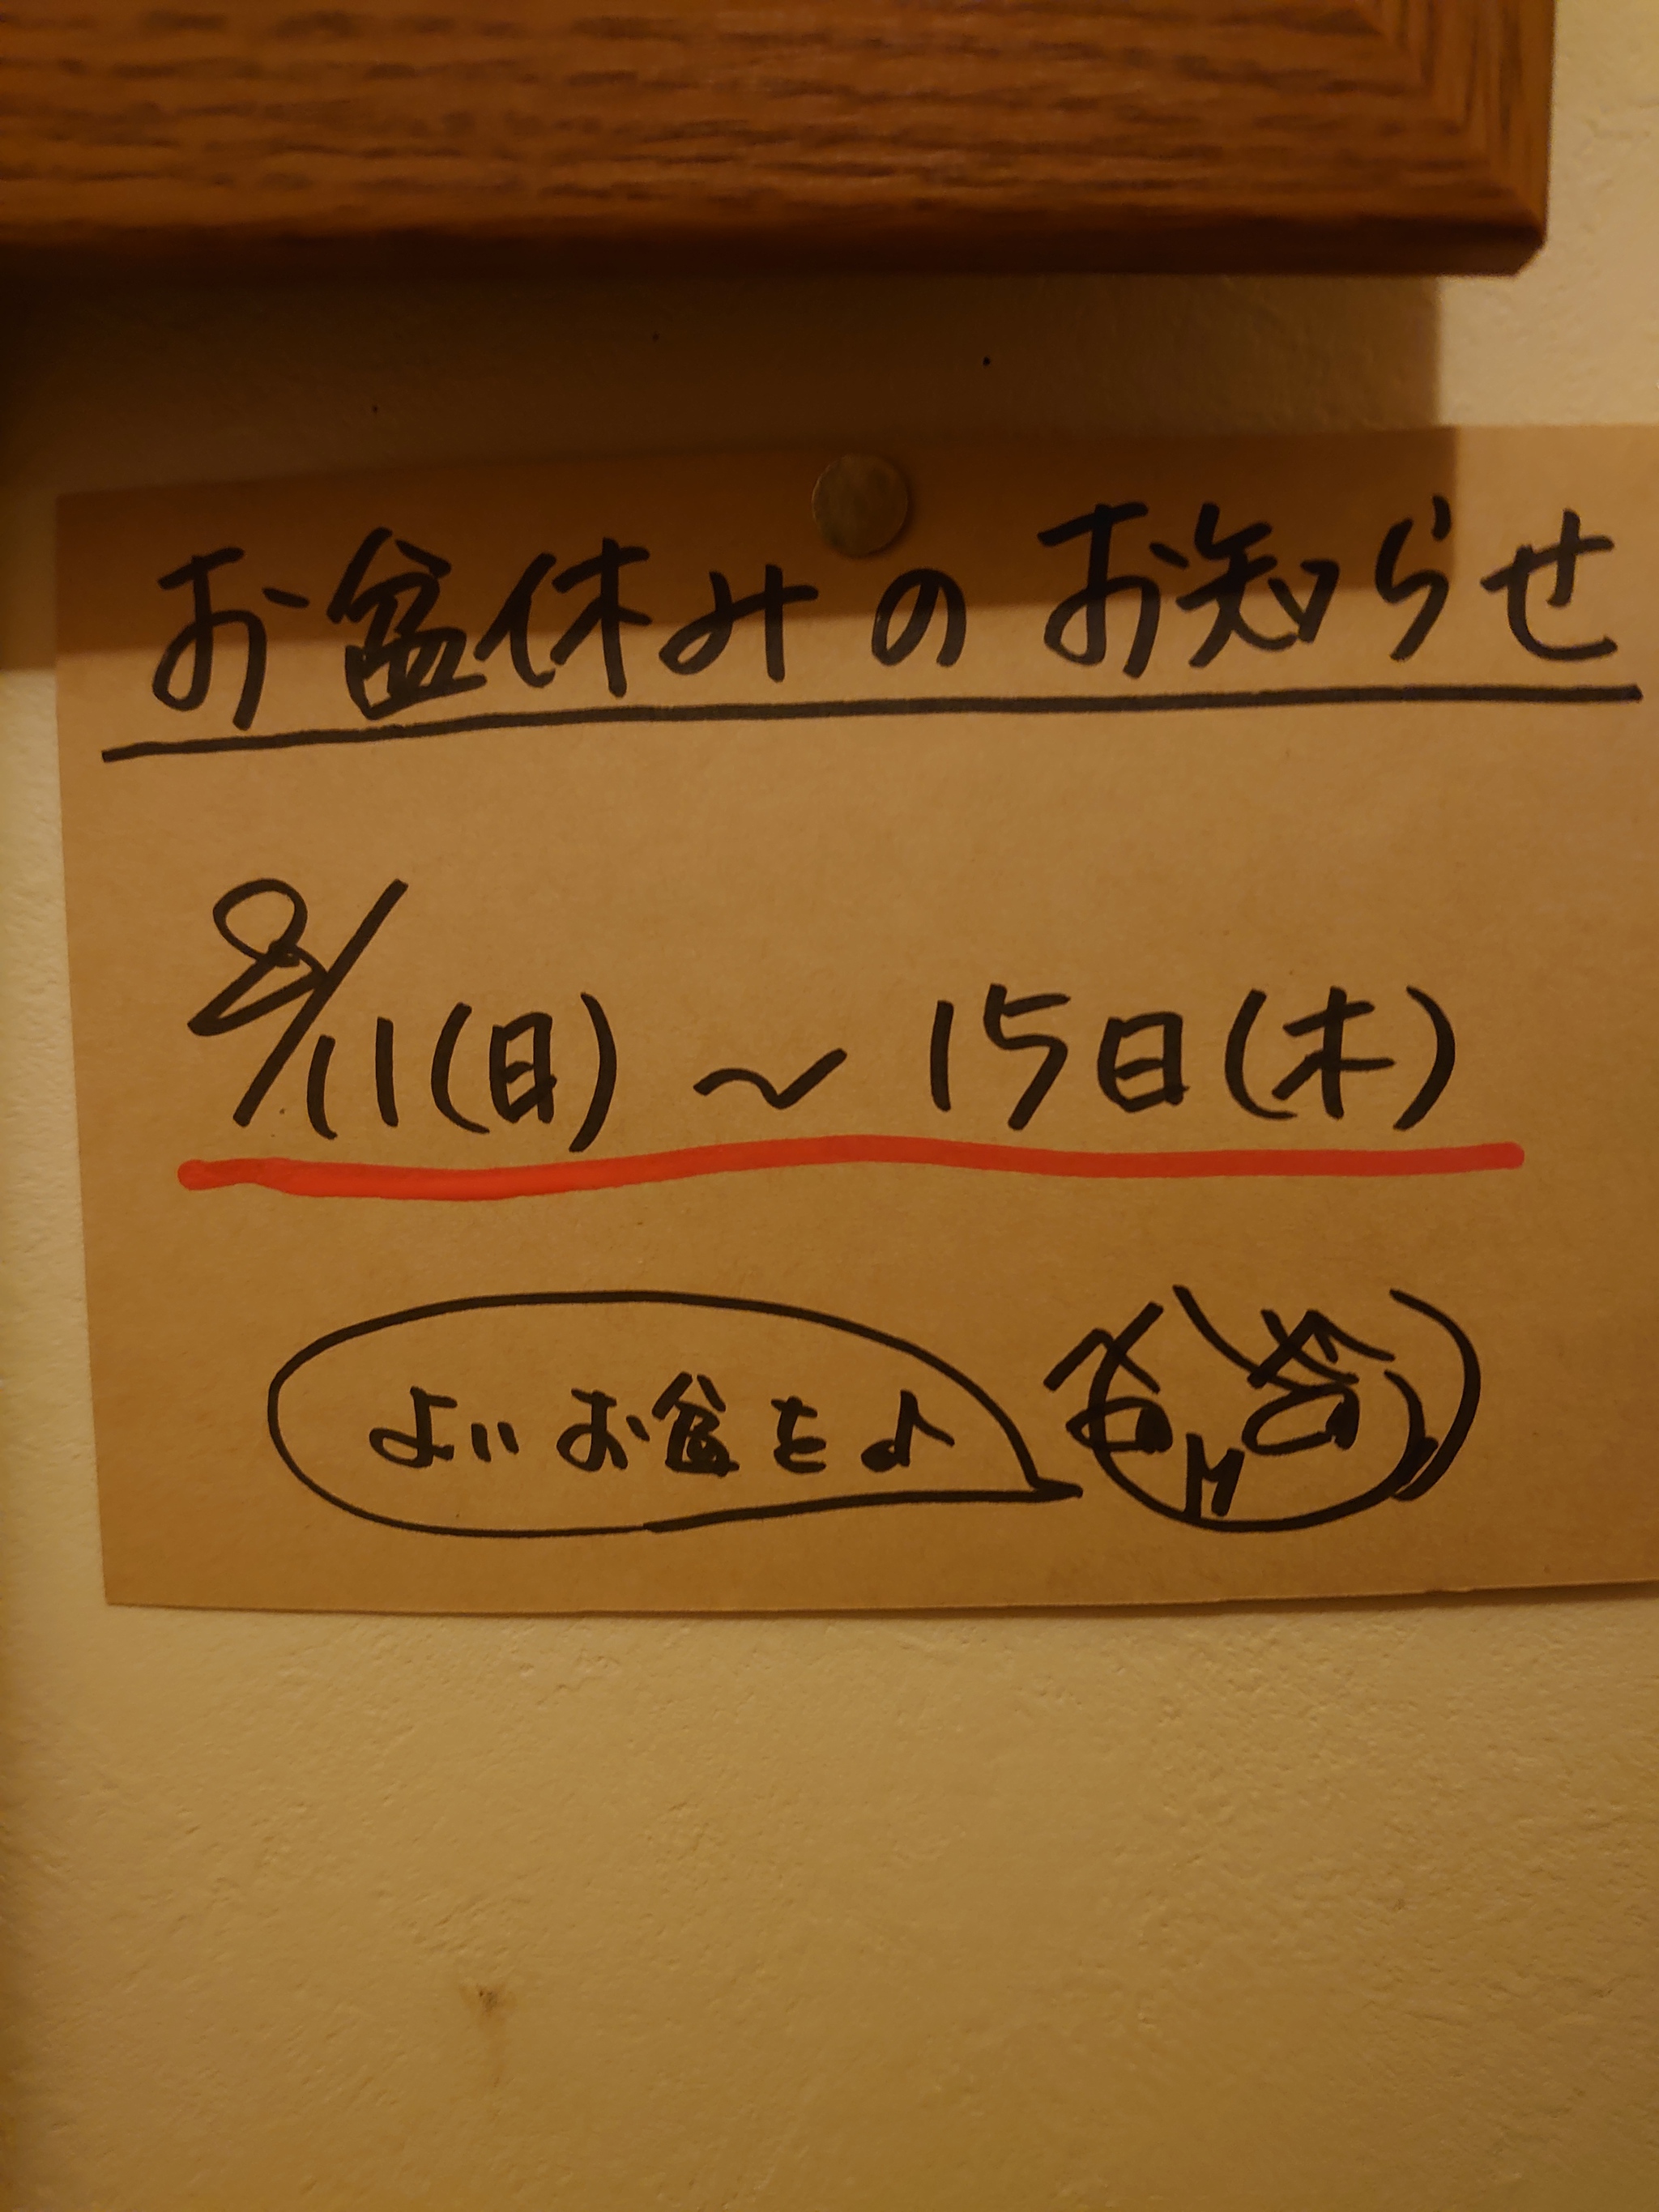 お盆休みのお知らせ
8/11(日)～15日(木)
よいお盆を♪